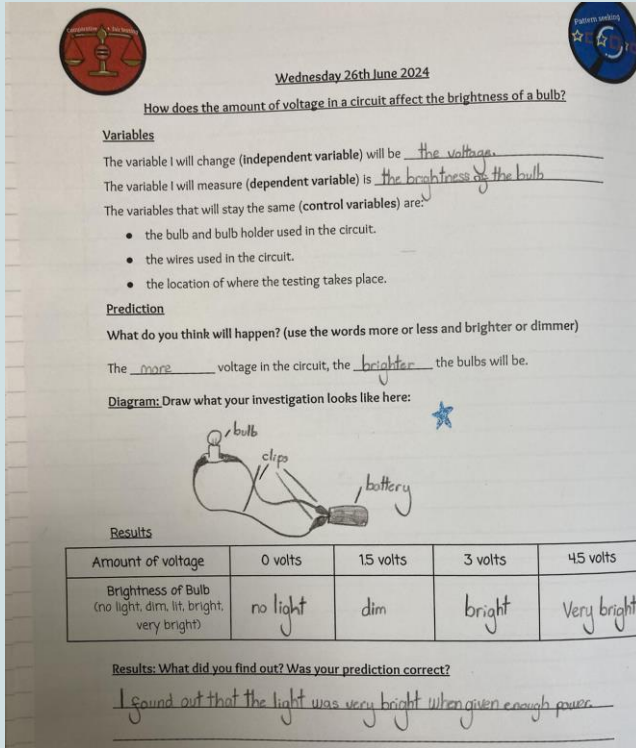 Comparative + Fair testing
Pattern seeking
Wednesday 26th June 2024
How does the amount of voltage in a circuit affect the brightness of a bulb?
Variables
The variable I will change (independent variable) will be the voltage.
The variable I will measure (dependent variable) is the brightness of the bulb
The variables that will stay the same (control variables) are:
• the bulb and bulb holder used in the circuit.
• the wires used in the circuit.
• the location of where the testing takes place.
Prediction
What do you think will happen? (use the words more or less and brighter or dimmer)
The more voltage in the circuit, the brighter the bulbs will be.
Diagram: Draw what your investigation looks like here:
bulb
clips
battery
Results
Amount of voltage 0 volts 1.5 volts 3 volts 4.5 volts
Brightness of Bulb
(no light, dim, lit, bright, no light dim bright Very bright
very bright)
Results: What did you find out? Was your prediction correct?
I found out that the light was very bright when given enough power.